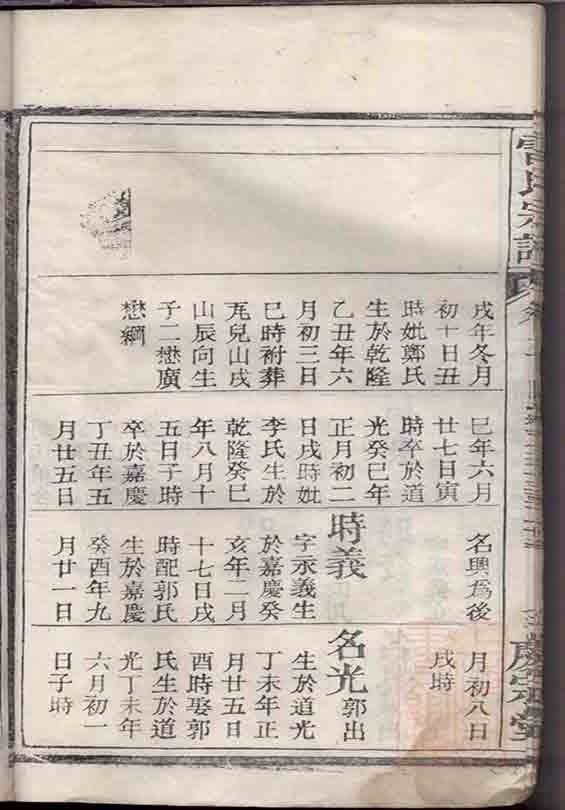 戌年冬月
初十日丑
時妣鄭氏
生於乾隆
乙丑年六
月初三日
巳時祔葬
兒山戌
山辰向生
子二懋廣
懋綱
巳年六月
廿七日寅
時卒於道
光癸巳年
正月初二
日戌時妣
李氏生於
乾隆癸巳
年八月十
五日子時
卒於嘉慶
丁丑年五
月廿五日
名興爲後
時義
字永義生
於嘉慶癸
亥年二月
十七日戌
時配郭氏
生於嘉慶
癸酉年九
月廿一日
月初八日
戌時
名光 郭出
生於道光
丁未年正
月廿五日
酉時娶郭
氏生於道
光丁未年
六月初一
日子時